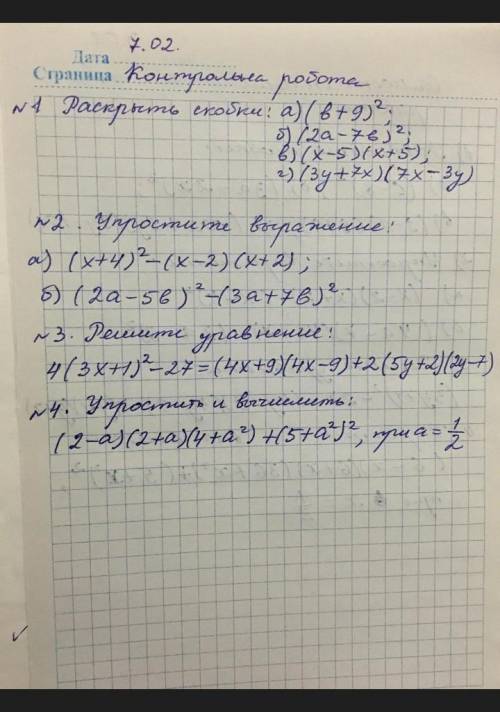 7.02.
Дата
Страница Контрольна робота
№1 Раскрыть скобки: а) (в+9)²;
б) (2а-7в)²;
в) (х-5)(х+5);
г) (3у+7х)(7х-3у)
№2. Упростите выражение:
а) (х+4)²-(х-2)(х+2);
б) (2а-5в)²-(3а+7в)²
№3. Решите уравнение:
4(3х+1)²-27=(4х+9)(4х-9)+2(5у+2)(2у-7)
№4. Упростить и вычислить:
(2-а)(2+а)(4+а²)+(5+а²)², при а=1/2